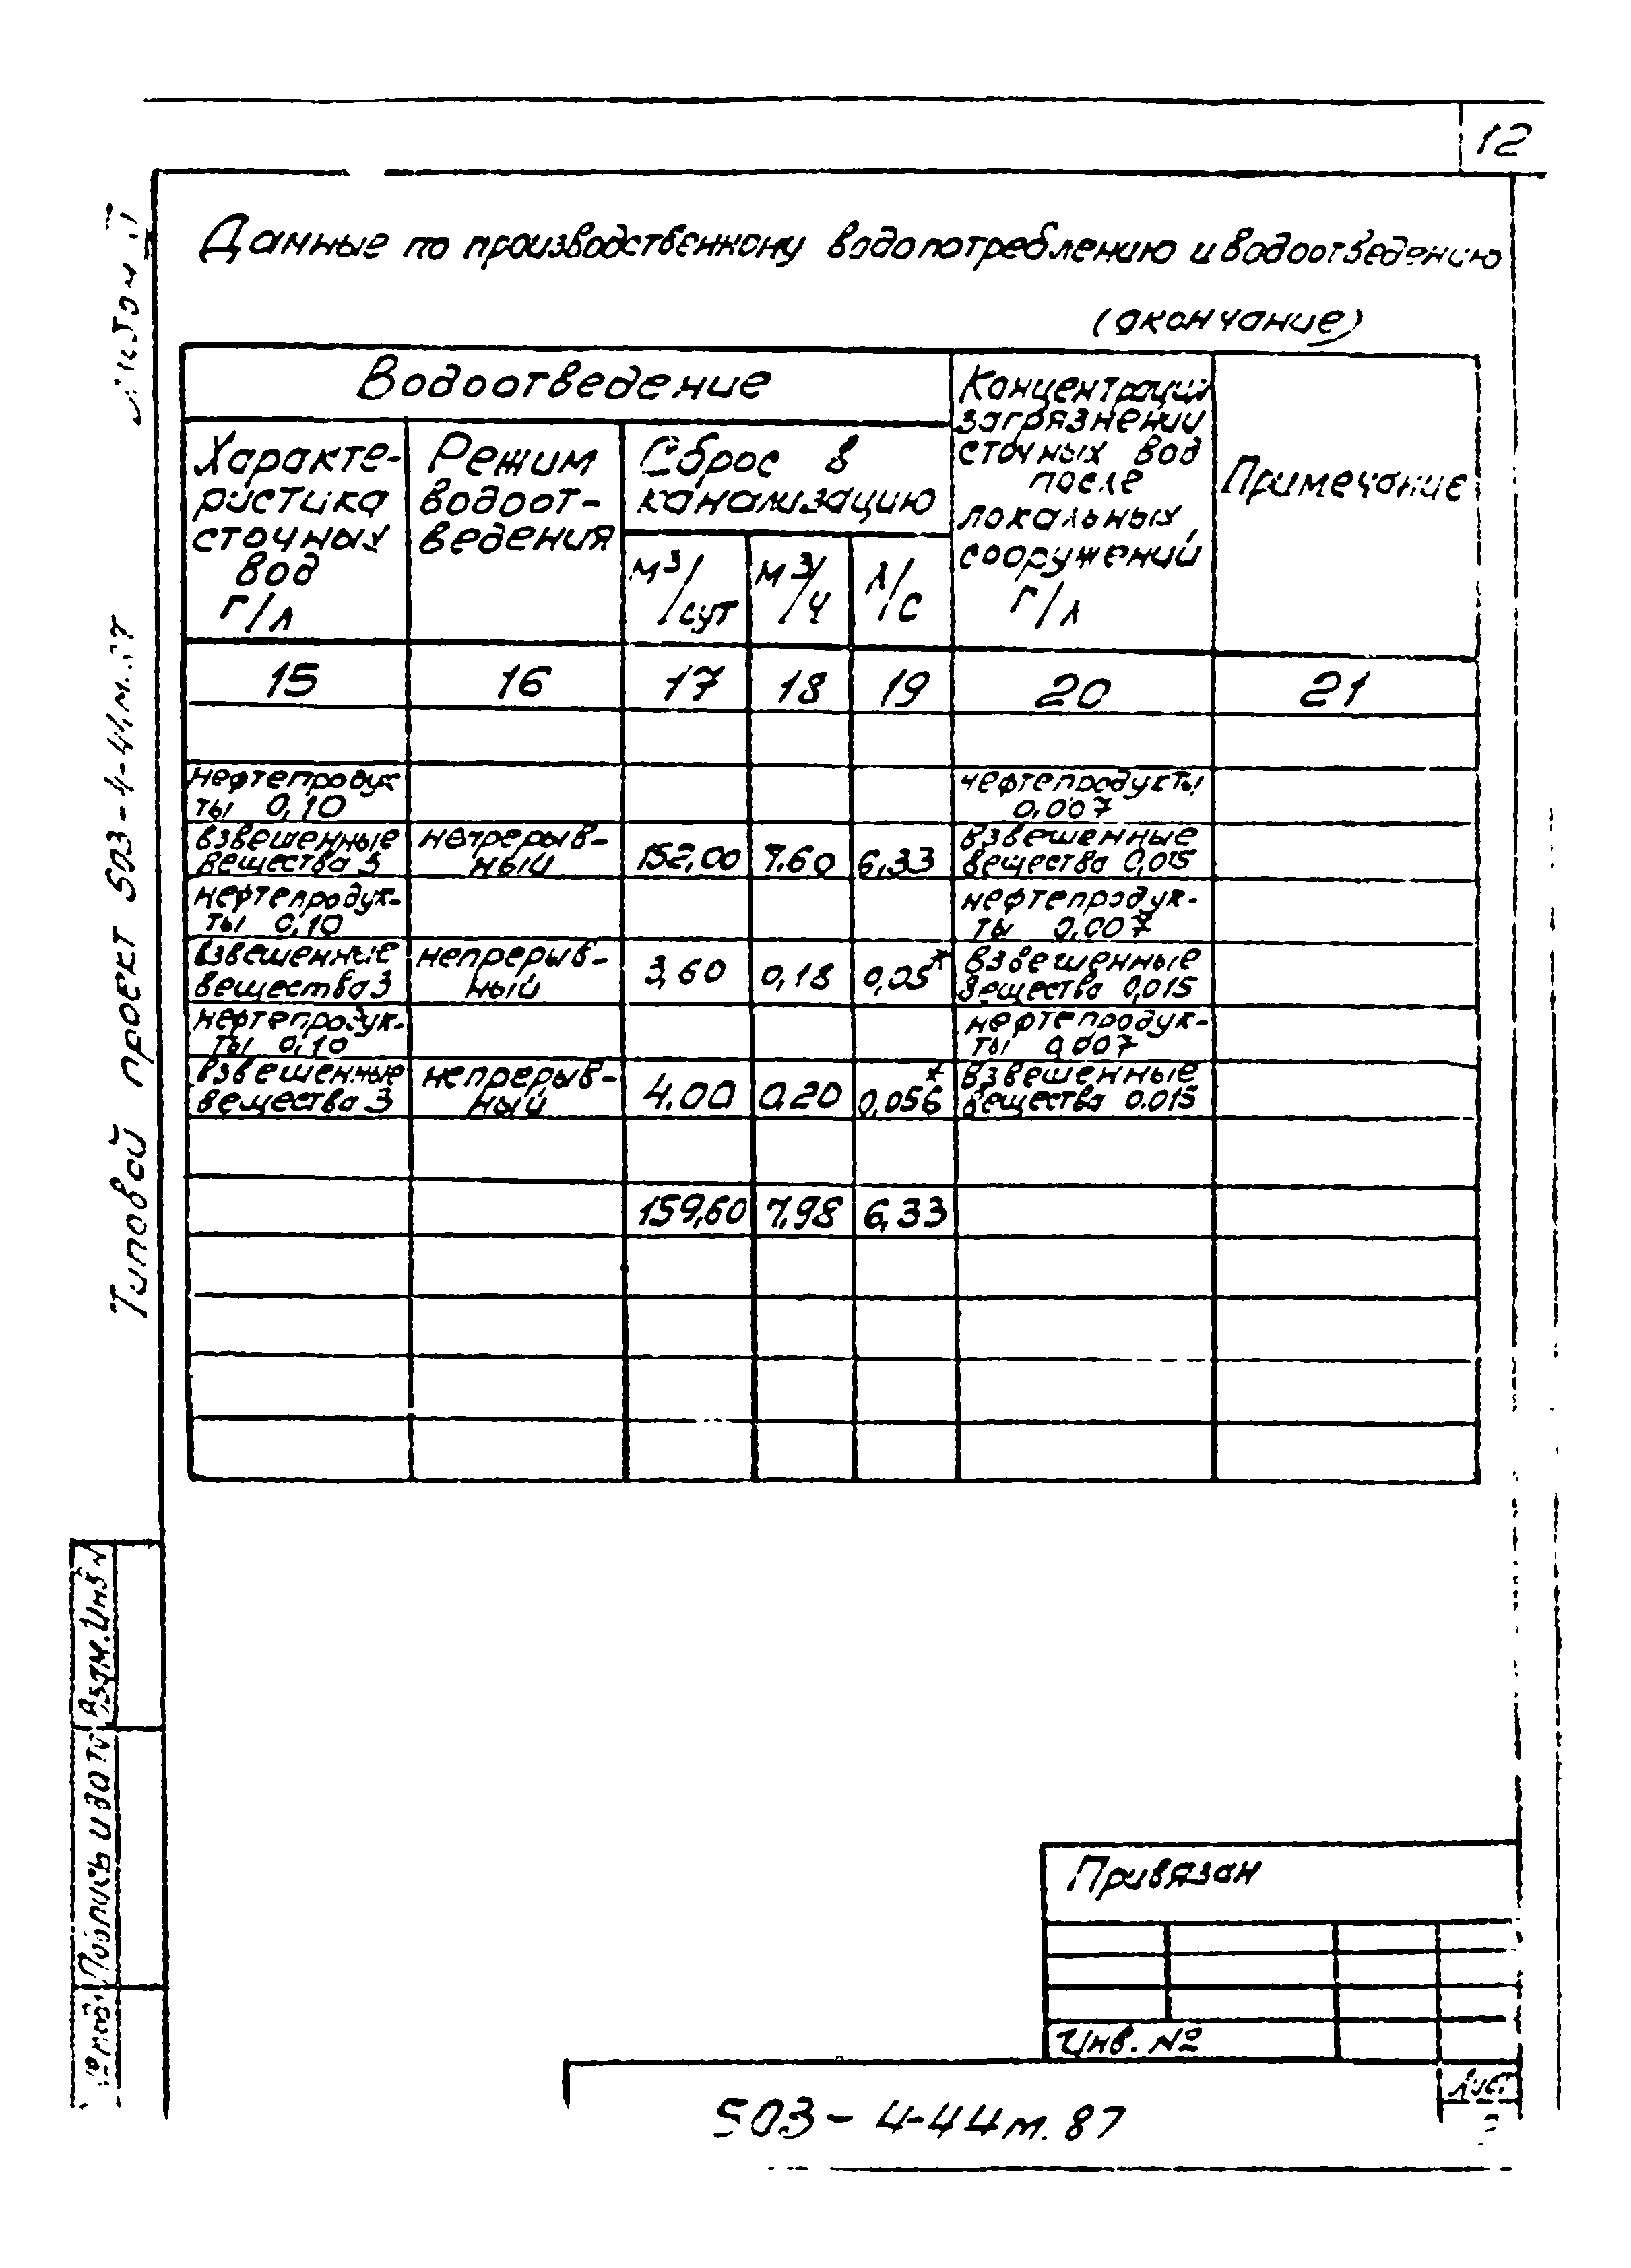 12
Данные по производственному водопотреблению и водоотведению
(окончание)
Водоотведение
Концентрация
загрязнений
сточных вод
после
локальных
сооружений
г/л
Примечание
Характе-
ристика
сточных
вод
г/л
Режим
водоот-
ведения
Сброс в
канализацию
м³/сут
м³/ч
л/с
15 16 17 18 19 20 21
нефтепродук
ты 0,10
нефтепродукты
0,007
взвешенные
вещества 3
непрерыв-
ный
152,00 7,60 6,33
взвешенные
вещества 0,015
нефтепродук-
ты 0,10
нефтепродук-
ты 0,007
взвешенные
вещества 3
непрерыв-
ный
3,60 0,18 0,05*
взвешенные
вещества 0,015
нефтепродук-
ты 0,10
нефтепродук-
ты 0,007
взвешенные
вещества 3
непрерыв-
ный
4.00 0,20 0,056*
взвешенные
вещества 0.015
159,60 7,98 6,33
Типовой проект 503-4-44
Взам. Инв
Подпись и дата
Привязан
Инв. №
503-4-44м.87
Лист